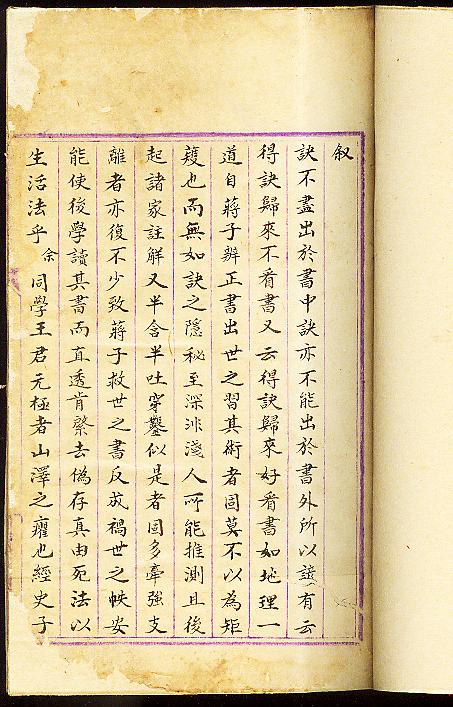 叙
訣不盡出於書中訣亦不能出於書外所以諺有云
得訣歸來不看書又云得訣歸來好看書如地理一
道自蔣子辨正書出世之習其術者固莫不以為矩
矱也而無如訣之隱秘至深非淺人所能推測且後
起諸家註觧又半含半吐穿鑿似是者固多牽強支
離者亦復不少致蔣子救世之書反成禍世之帙安
能使後學讀其書而直透肯綮去偽存真由死法以
生活法乎余同學王君元極者山澤之癯也經史子